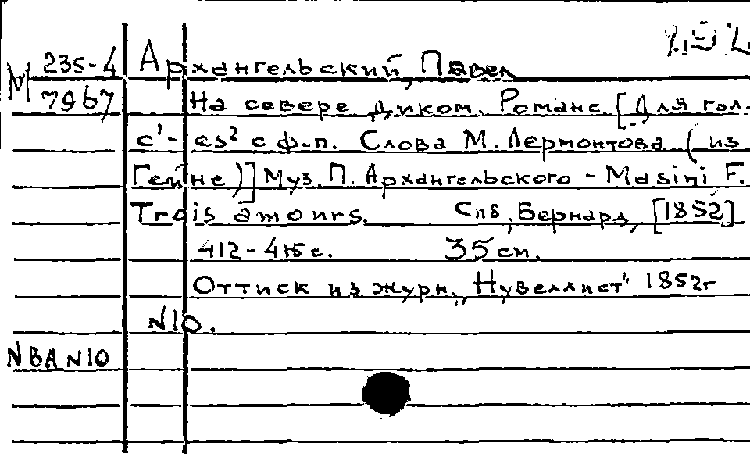 М 235-4 Архангельский, Павел
7967 На севере диком. Романс. [Для гол.
c¹-es² с ф-п. Слова М. Лермонтова (из
Гейне)] Муз. П. Архангельского - Masini F.
Trois amours. Спб, Бернард, [1852]
412-415 с. 35 см.
Оттиск из журн. „Нувеллист" 1852г
N10.
NBA N10